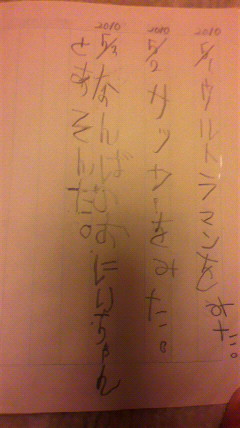 2010
5/1 ウルトラマンをみた。
2010
5/2 サッカーをみた。
2010
5/3
にいちゃん
あそんだ。